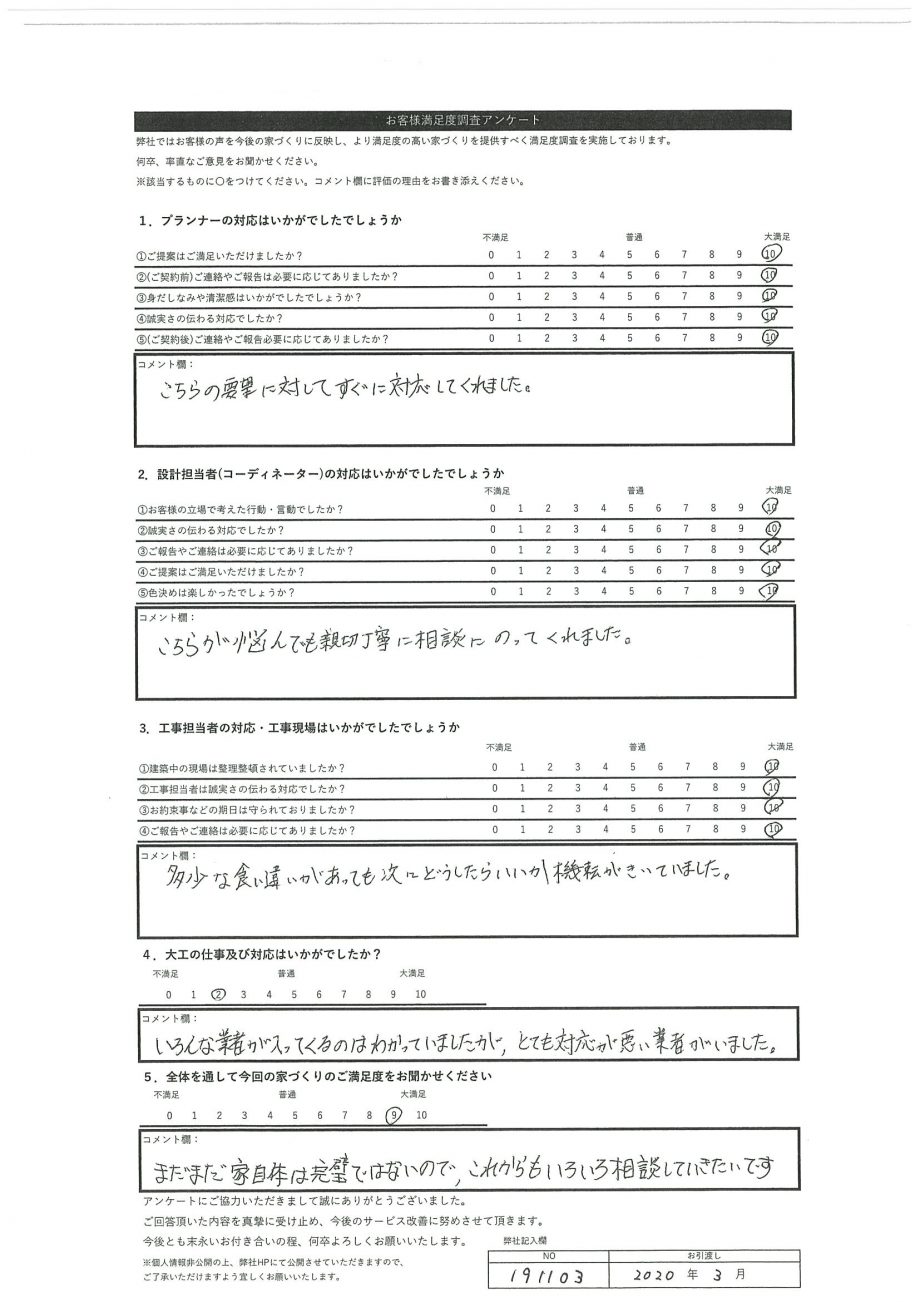 お客様満足度調査アンケート
弊社ではお客様の声を今後の家づくりに反映し、より満足度の高い家づくりを提供すべく満足度調査を実施しております。
何卒、率直なご意見をお聞かせください。
※該当するものに〇をつけてください。コメント欄に評価の理由をお書き添えください。
1．プランナーの対応はいかがでしたでしょうか
不満足 普通 大満足
①ご提案はご満足いただけましたか？ 0 1 2 3 4 5 6 7 8 9 10
②(ご契約前)ご連絡やご報告は必要に応じてありましたか？ 0 1 2 3 4 5 6 7 8 9 10
③身だしなみや清潔感はいかがでしたでしょうか？ 0 1 2 3 4 5 6 7 8 9 10
④誠実さの伝わる対応でしたか？ 0 1 2 3 4 5 6 7 8 9 10
⑤(ご契約後)ご連絡やご報告必要に応じてありましたか？ 0 1 2 3 4 5 6 7 8 9 10
コメント欄：
こちらの要望に対してすぐに対応してくれました。
2．設計担当者(コーディネーター)の対応はいかがでしたでしょうか
不満足 普通 大満足
①お客様の立場で考えた行動・言動でしたか？ 0 1 2 3 4 5 6 7 8 9 10
②誠実さの伝わる対応でしたか？ 0 1 2 3 4 5 6 7 8 9 10
③ご報告やご連絡は必要に応じてありましたか？ 0 1 2 3 4 5 6 7 8 9 10
④ご提案はご満足いただけましたか？ 0 1 2 3 4 5 6 7 8 9 10
⑤色決めは楽しかったでしょうか？ 0 1 2 3 4 5 6 7 8 9 10
コメント欄：
こちらが悩んでも親切丁寧に相談にのってくれました。
3．工事担当者の対応・工事現場はいかがでしたでしょうか
不満足 普通 大満足
①建築中の現場は整理整頓されていましたか？ 0 1 2 3 4 5 6 7 8 9 10
②工事担当者は誠実さの伝わる対応でしたか？ 0 1 2 3 4 5 6 7 8 9 10
③お約束事などの期日は守られておりましたか？ 0 1 2 3 4 5 6 7 8 9 10
④ご報告やご連絡は必要に応じてありましたか？ 0 1 2 3 4 5 6 7 8 9 10
コメント欄：
多少な食い違いがあっても次にどうしたらいいか機転がきいていました。
4．大工の仕事及び対応はいかがでしたか？
不満足 普通 大満足
0 1 2 3 4 5 6 7 8 9 10
コメント欄：
いろんな業者が入ってくるのはわかっていましたが、とても対応が悪い業者がいました。
5．全体を通して今回の家づくりのご満足度をお聞かせください
不満足 普通 大満足
0 1 2 3 4 5 6 7 8 9 10
コメント欄：
まだまだ家自体は完璧ではないので、これからもいろいろ相談していきたいです
アンケートにご協力いただきまして誠にありがとうございました。
ご回答頂いた内容を真摯に受け止め、今後のサービス改善に努めさせて頂きます。
今後とも末永いお付き合いの程、何卒よろしくお願いいたします。 弊社記入欄
※個人情報非公開の上、弊社HPにて公開させていただきますので、
ご了承いただけますよう宜しくお願いいたします。
NO お引渡し
191103 2020 年 3 月